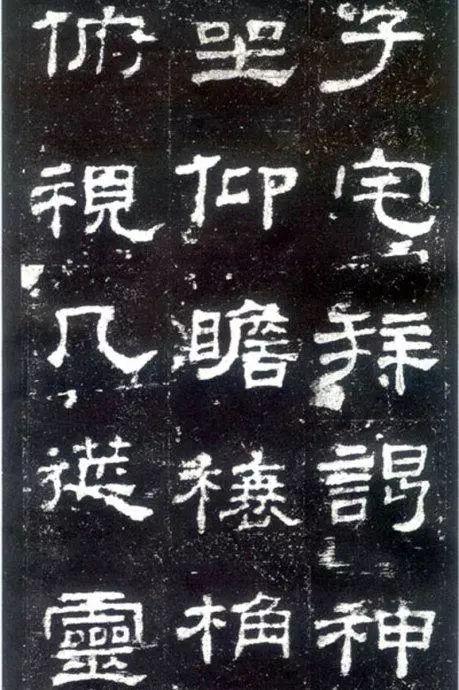 子宅拜謁神
坐仰瞻榱桷
俯視几筵靈